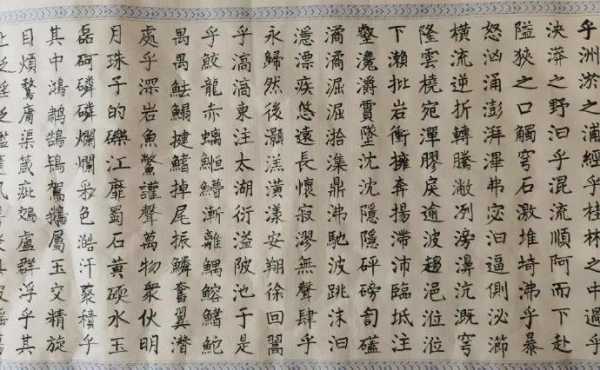 乎洲淤之浦經乎桂林之中過乎
泱漭之野汩乎混流順阿而下赴
隘狹之口觸穹石激堆埼沸乎暴
怒洶涌彭湃滭弗宓汩逼側泌瀄
橫流逆折轉騰潎洌滂濞沆溉穹
隆雲橈宛潬膠戾逾波趨浥涖涖
下瀨批岩衝擁奔揚滯沛臨坻注
壑瀺灂賈墜沈沈隱隱砰磅訇礚
潏潏淈淈湁潗鼎沸馳波跳沫汩
漂疾悠遠長懷寂漻無聲肆乎
永歸然後灝溔潢漾安翔徐回翯
乎滈滈東注太湖衍溢陂池于是
乎鮫龍赤螭䱭䲛漸離鰅鰫鰭鮀
禺禺魼鰨揵鰭掉尾振鱗奮翼潛
處乎深岩魚鱉讙聲萬物衆伙明
月珠子的礫江靡蜀石黃碝水玉
磊砢磷磷爛爛采色澔汗藂積乎
其中鴻鷫鵠鴇鴐鵝屬玉交精旋
目煩鶩庸渠箴疵鵁盧群浮乎其